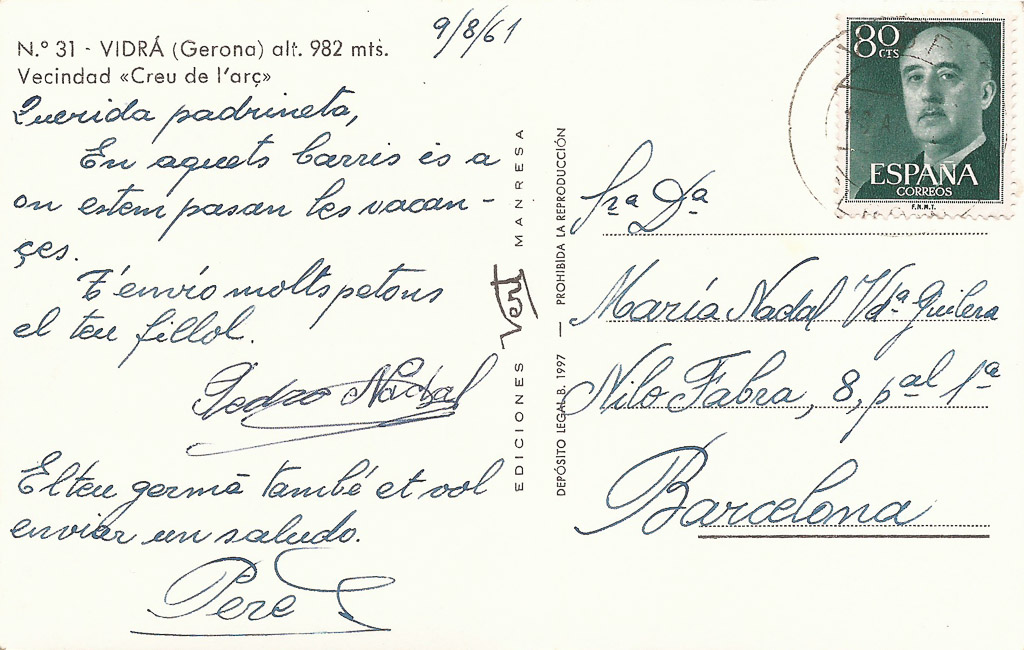 N.º 31 - VIDRÁ (Gerona) alt. 982 mts.
Vecindad «Creu de l'arç»
9/8/61
Querida padrineta,
En aquets barris és a
on estem pasan les vacan-
çes.
T'envio molts petons
el teu fillol.
Pedro Nadal
El teu germà també et vol
enviar un saludo.
Pere
EDICIONES Vert MANRESA
DEPÓSITO LEGAL B. 1997 — PROHIBIDA LA REPRODUCCIÓN
80 CTS
ESPAÑA
CORREOS
F.N.M.T.
Sra Dª
María Nadal Vdª Guilera
Nilo Fabra, 8, pal 1ª
Barcelona